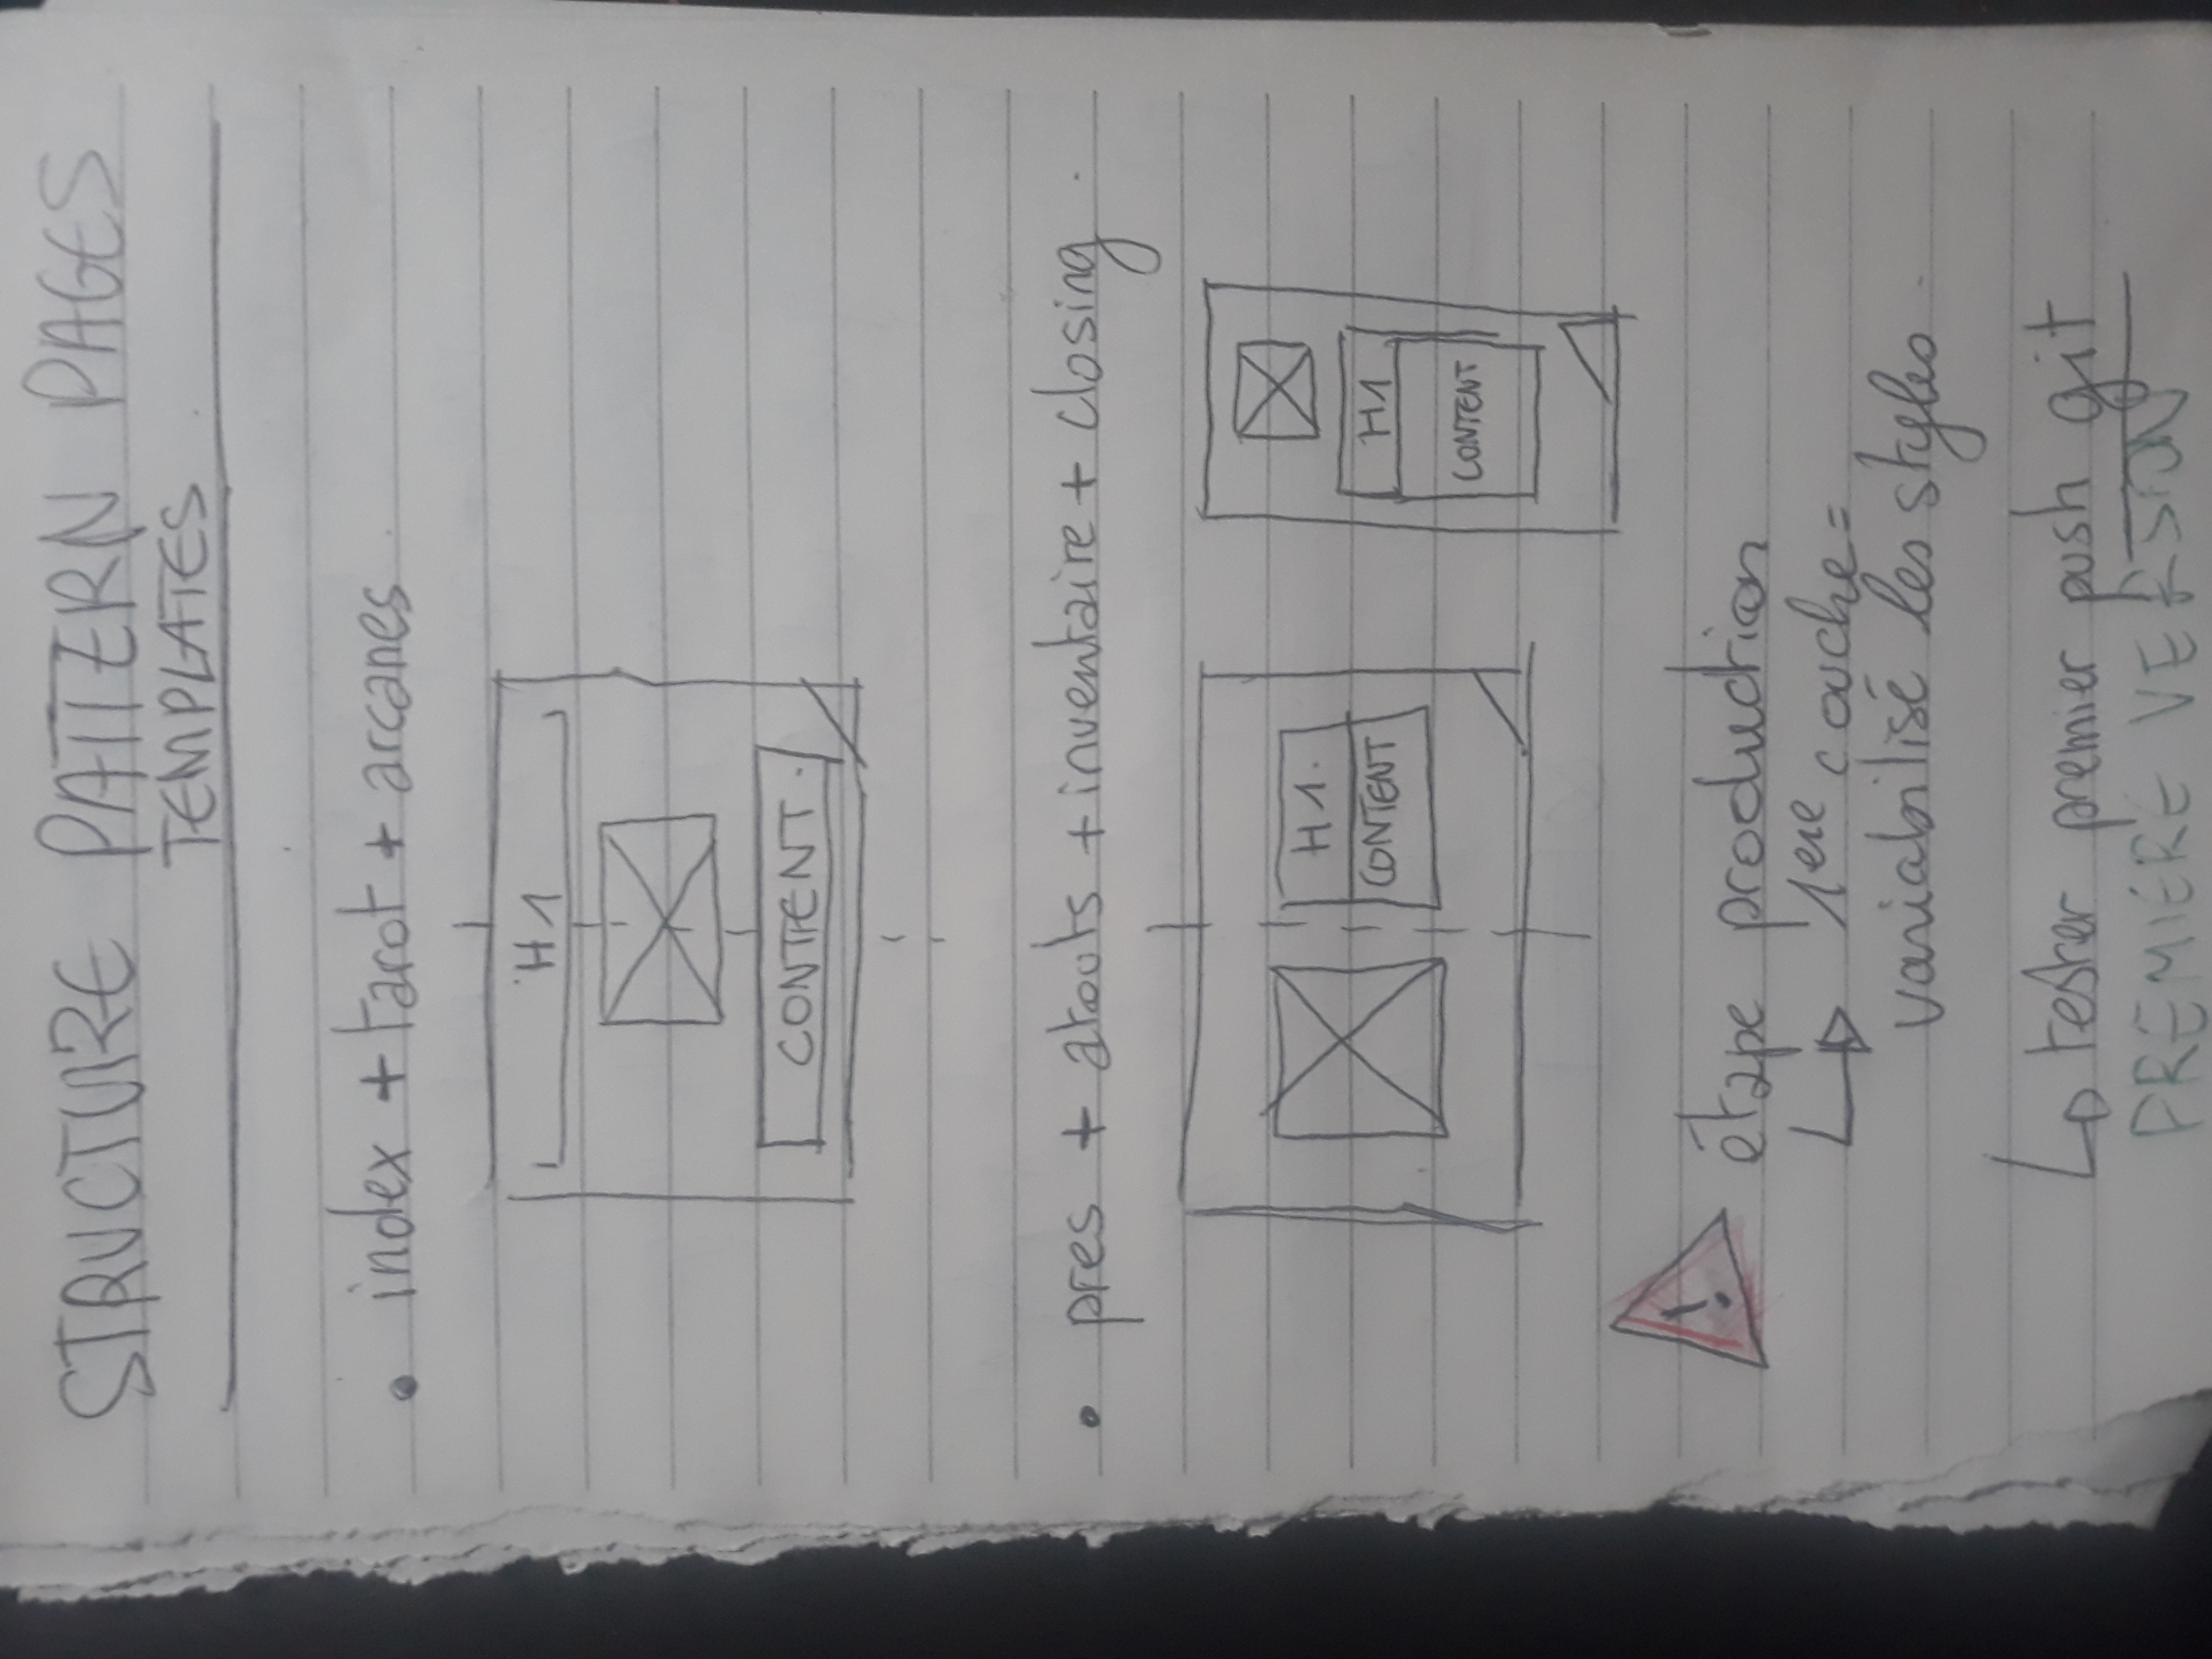 STRUCTURE PATTERN PAGES
TEMPLATES
• index + tarot + arcanes
H1
CONTENT.
• pres + atouts + inventaire + closing
H1.
CONTENT
H1
CONTENT
!
étape production
1ere couche =
variabilisé les styles.
tester premier push git
PREMIERE VERSION